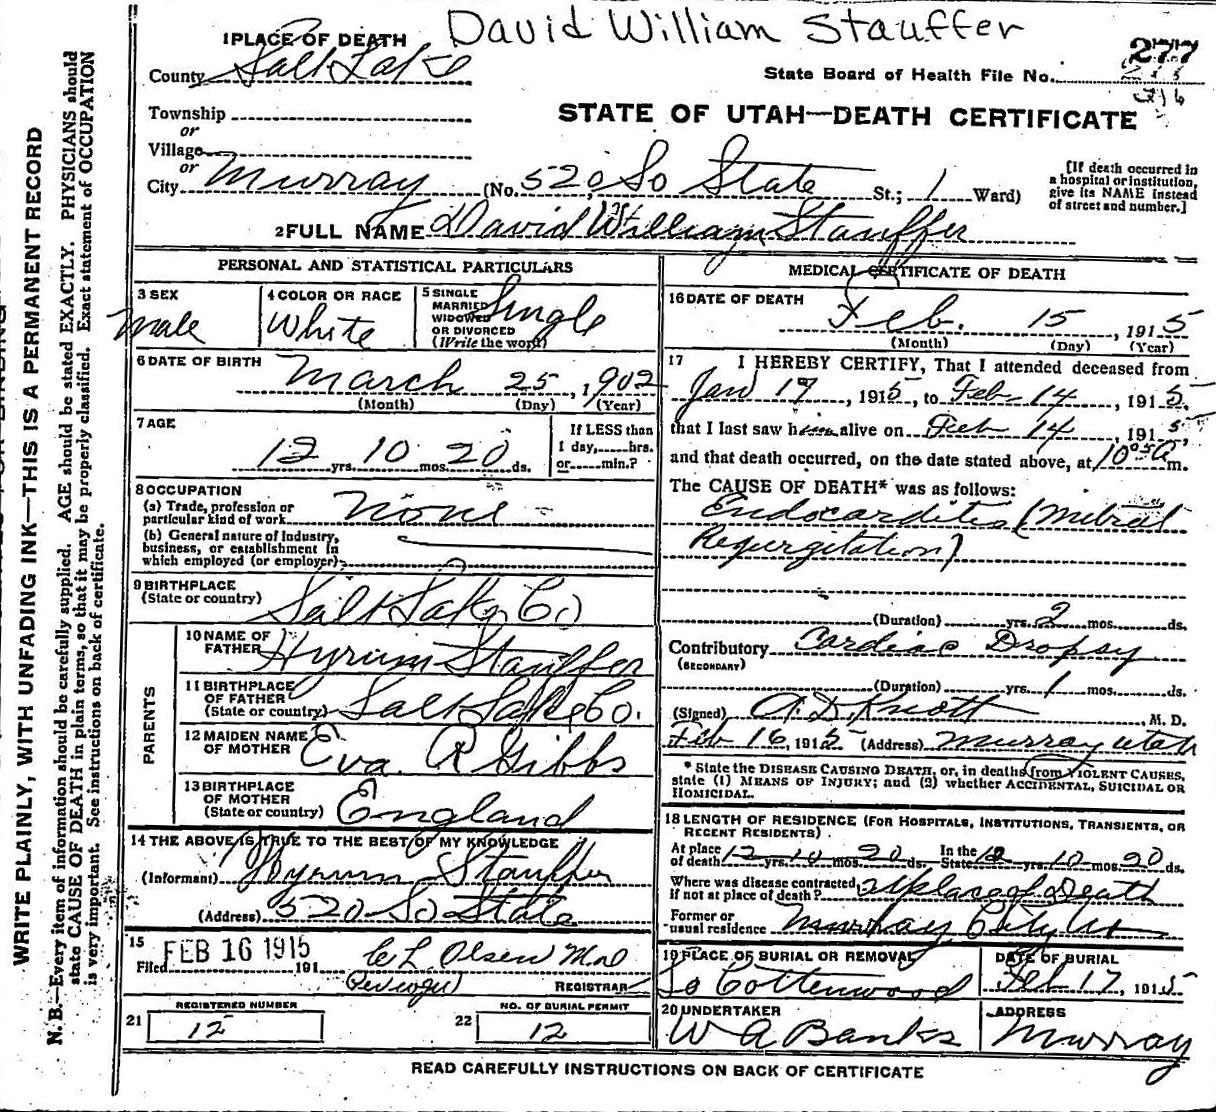 David William Stauffer
1 PLACE OF DEATH
County Salt Lake
277
State Board of Health File No.
Township
or
Village
or
STATE OF UTAH—DEATH CERTIFICATE
City Murray (No. 520 So State St.; 1 Ward)
[If death occurred in a hospital or institution, give its NAME instead of street and number.]
2 FULL NAME David William Stauffer
PERSONAL AND STATISTICAL PARTICULARS
3 SEX
male
4 COLOR OR RACE
White
5 SINGLE
MARRIED
WIDOWED
OR DIVORCED
(Write the word)
Single
6 DATE OF BIRTH
March 25, 1902
(Month) (Day) (Year)
7 AGE
12 yrs. 10 mos. 20 ds.
If LESS than
1 day, hrs.
or min.?
8 OCCUPATION
(a) Trade, profession or
particular kind of work None
(b) General nature of Industry,
business, or establishment in
which employed (or employer)
9 BIRTHPLACE
(State or country) Salt Lake Co
PARENTS
10 NAME OF
FATHER Hyrum Stauffer
11 BIRTHPLACE
OF FATHER
(State or country) Salt Lake Co.
12 MAIDEN NAME
OF MOTHER Eva R Gibbs
13 BIRTHPLACE
OF MOTHER
(State or country) England
14 THE ABOVE IS TRUE TO THE BEST OF MY KNOWLEDGE
(Informant) Hyrum Stauffer
(Address) 520 So State
15
Filed FEB 16 1915 191 C L Olsen M D
REGISTRAR
REGISTERED NUMBER
21 12
NO. OF BURIAL PERMIT
22 12
MEDICAL CERTIFICATE OF DEATH
16 DATE OF DEATH
Feb. 15, 1915
(Month) (Day) (Year)
17 I HEREBY CERTIFY, That I attended deceased from
Jan 17, 1915, to Feb 14, 1915.
that I last saw him alive on Feb 14, 1915,
and that death occurred, on the date stated above, at 10 50 a m.
The CAUSE OF DEATH* was as follows:
Endocarditis (Mitral
Regurgitation)
(Duration) yrs. 2 mos. ds.
Contributory Cardiac Dropsy
(SECONDARY)
(Duration) yrs. 1 mos. ds.
(Signed) A. D. Knott, M. D.
Feb 16, 1915 (Address) Murray Utah
* State the DISEASE CAUSING DEATH, or, in deaths from VIOLENT CAUSES,
state (1) MEANS OF INJURY; and (2) whether ACCIDENTAL, SUICIDAL OR
HOMICIDAL.
18 LENGTH OF RESIDENCE (FOR HOSPITALS, INSTITUTIONS, TRANSIENTS, OR
RECENT RESIDENTS)
At place
of death 12 yrs. 10 mos. 20 ds. In the
State 12 yrs. 10 mos. 20 ds.
Where was disease contracted,
if not at place of death? at place of Death
Former or
usual residence Murray City Ut
19 PLACE OF BURIAL OR REMOVAL
So Cottonwood
DATE OF BURIAL
Feb 17, 1915
20 UNDERTAKER
W A Banks
ADDRESS
Murray
READ CAREFULLY INSTRUCTIONS ON BACK OF CERTIFICATE
WRITE PLAINLY, WITH UNFADING INK—THIS IS A PERMANENT RECORD
N. B.—Every item of information should be carefully supplied. AGE should be stated EXACTLY. PHYSICIANS should
state CAUSE OF DEATH in plain terms, so that it may be properly classified. Exact statement of OCCUPATION
is very important. See instructions on back of certificate.